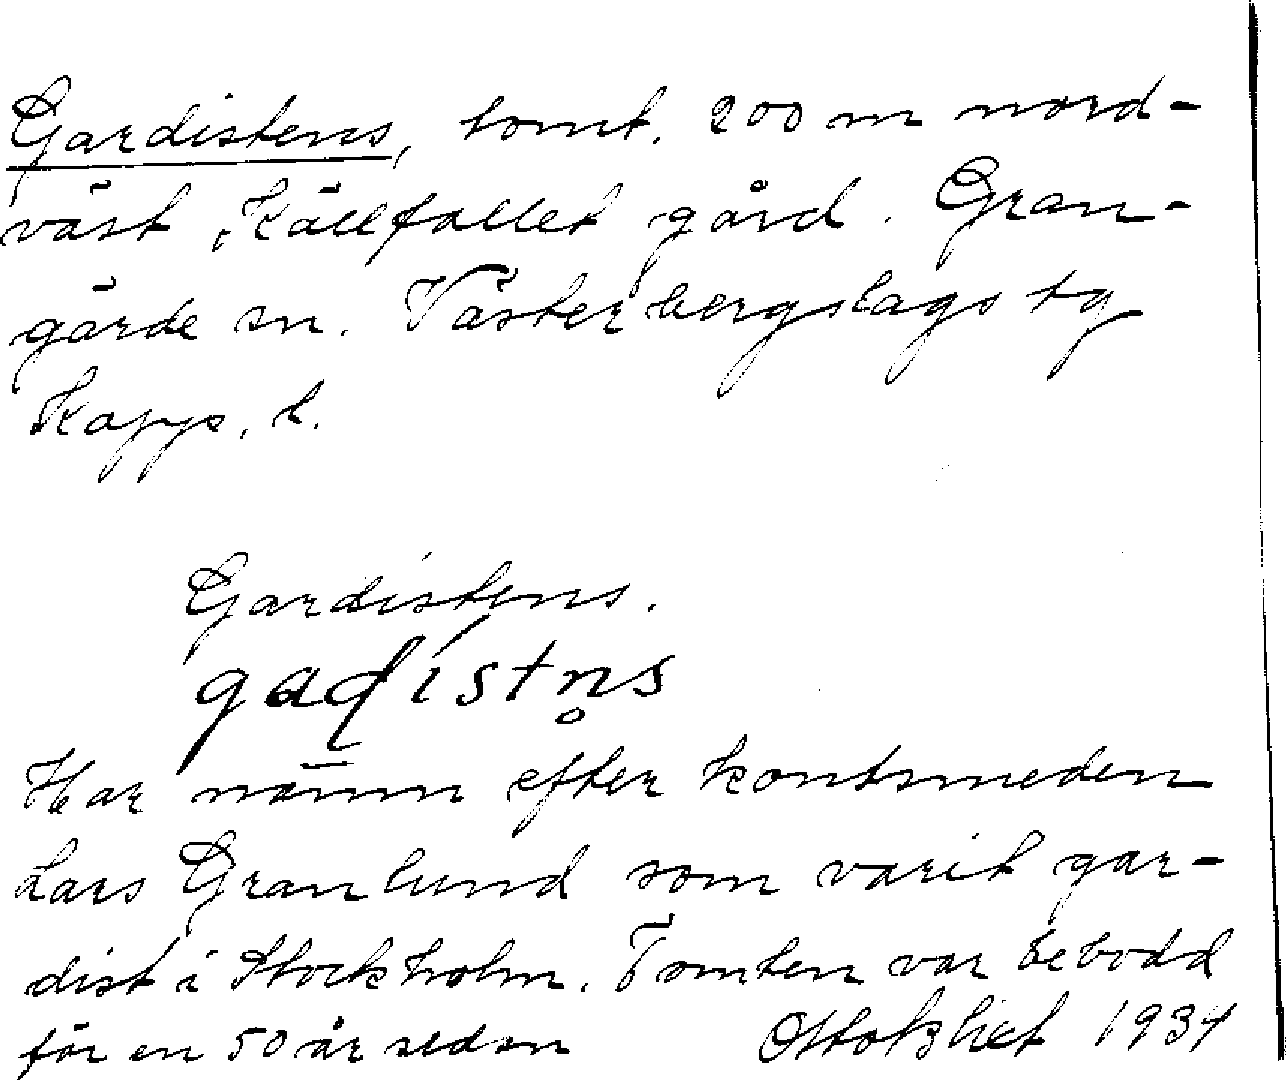 Gardistens, tomt. 200 m nord-
väst Källfallet gård. Gran-
gärde sn. Västerbergslags tg
Kopps. l.
Gardistens.
gaḍistn̥s
Har namn efter kontsmeden
Lars Granlund som varit gar-
dist i Stockholm. Tomten var bebodd
för en 50 år sedan
1934